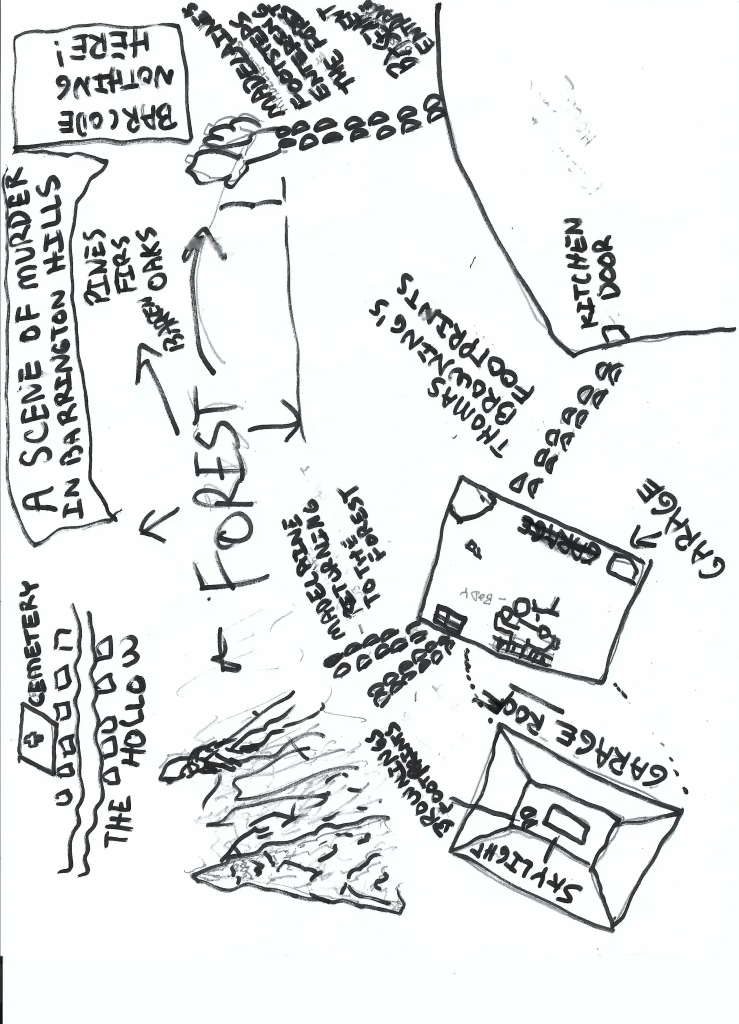 BARCODE
NOTHING
HERE!
A SCENE OF MURDER
IN BARRINGTON HILLS
PINES
FIRS
OAKS
BARREN
MADELAINE'S
FOOTSTEPS
ENTERING
THE FOREST
BASEMENT
ENTRANCE
FOREST
KITCHEN
DOOR
THOMAS
BROWNING'S
FOOTPRINTS
MADELAINE
RETURNING
TO THE
FOREST
GARAGE
GARAGE
BODY
CEMETERY
THE HOLLOW
BROWNINGS
FOOTPRINTS
GARAGE ROOF
SKYLIGHT